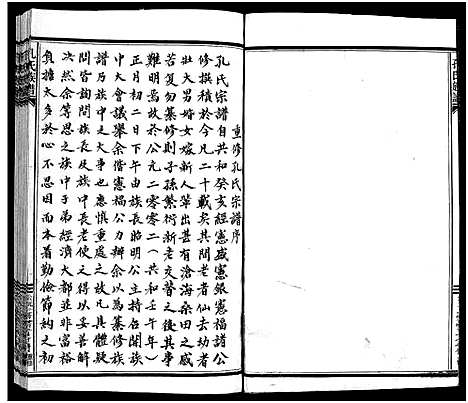 重修孔氏宗譜序
孔氏宗譜自共和癸亥經憲威憲銀憲福諸公
修撰積於今凡二十載矣其間老者仙去幼者
壯大男婚女嫁新人輩出甚有滄海桑田之感
苦復勿纂修則子孫繁衍新老交替之後其事
難明焉故於公元二零零二(共和壬午年)
正月初二日下午由族中長老召開族
中大會議舉余偕憲福公力辦余以為纂修族
譜乃族中長老也應慎重處之其具體疑
難問題族長及族中長老使之得以妥善解
決然余等思之族中子弟經濟大都並非富裕
負擔太多於心不忍因而本着勤儉節約之初
孔氏族譜